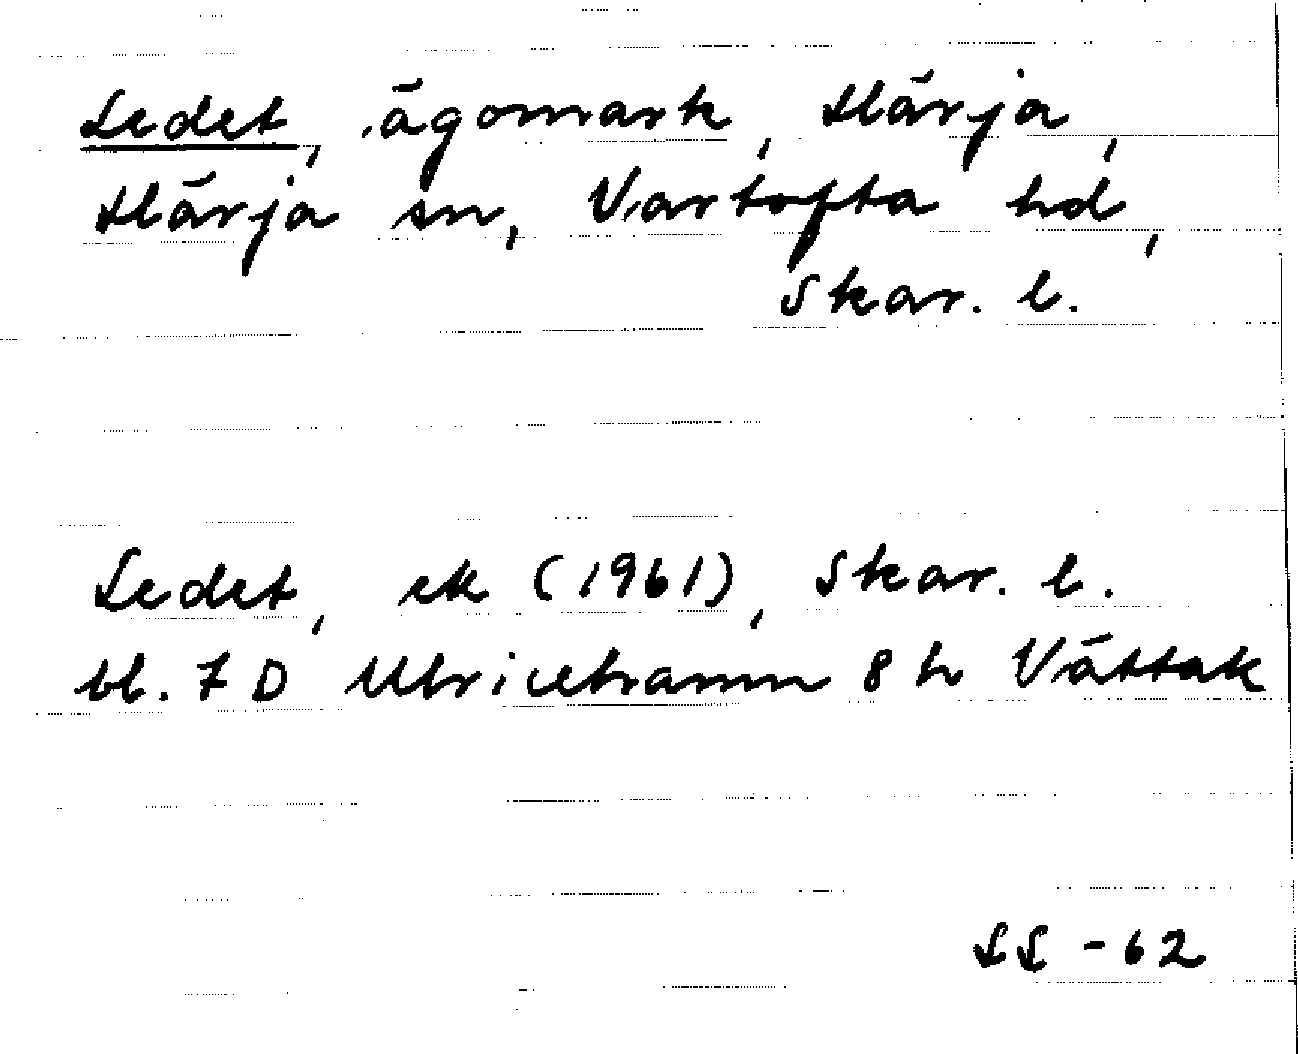 Ledet, ägomark, Härja,
Härja sn, Vartofta hd,
Skar. l.
Ledet, ek (1961), Skar. l.
bl. 7 D Ulricehamn 8 h Vättak
LL -62